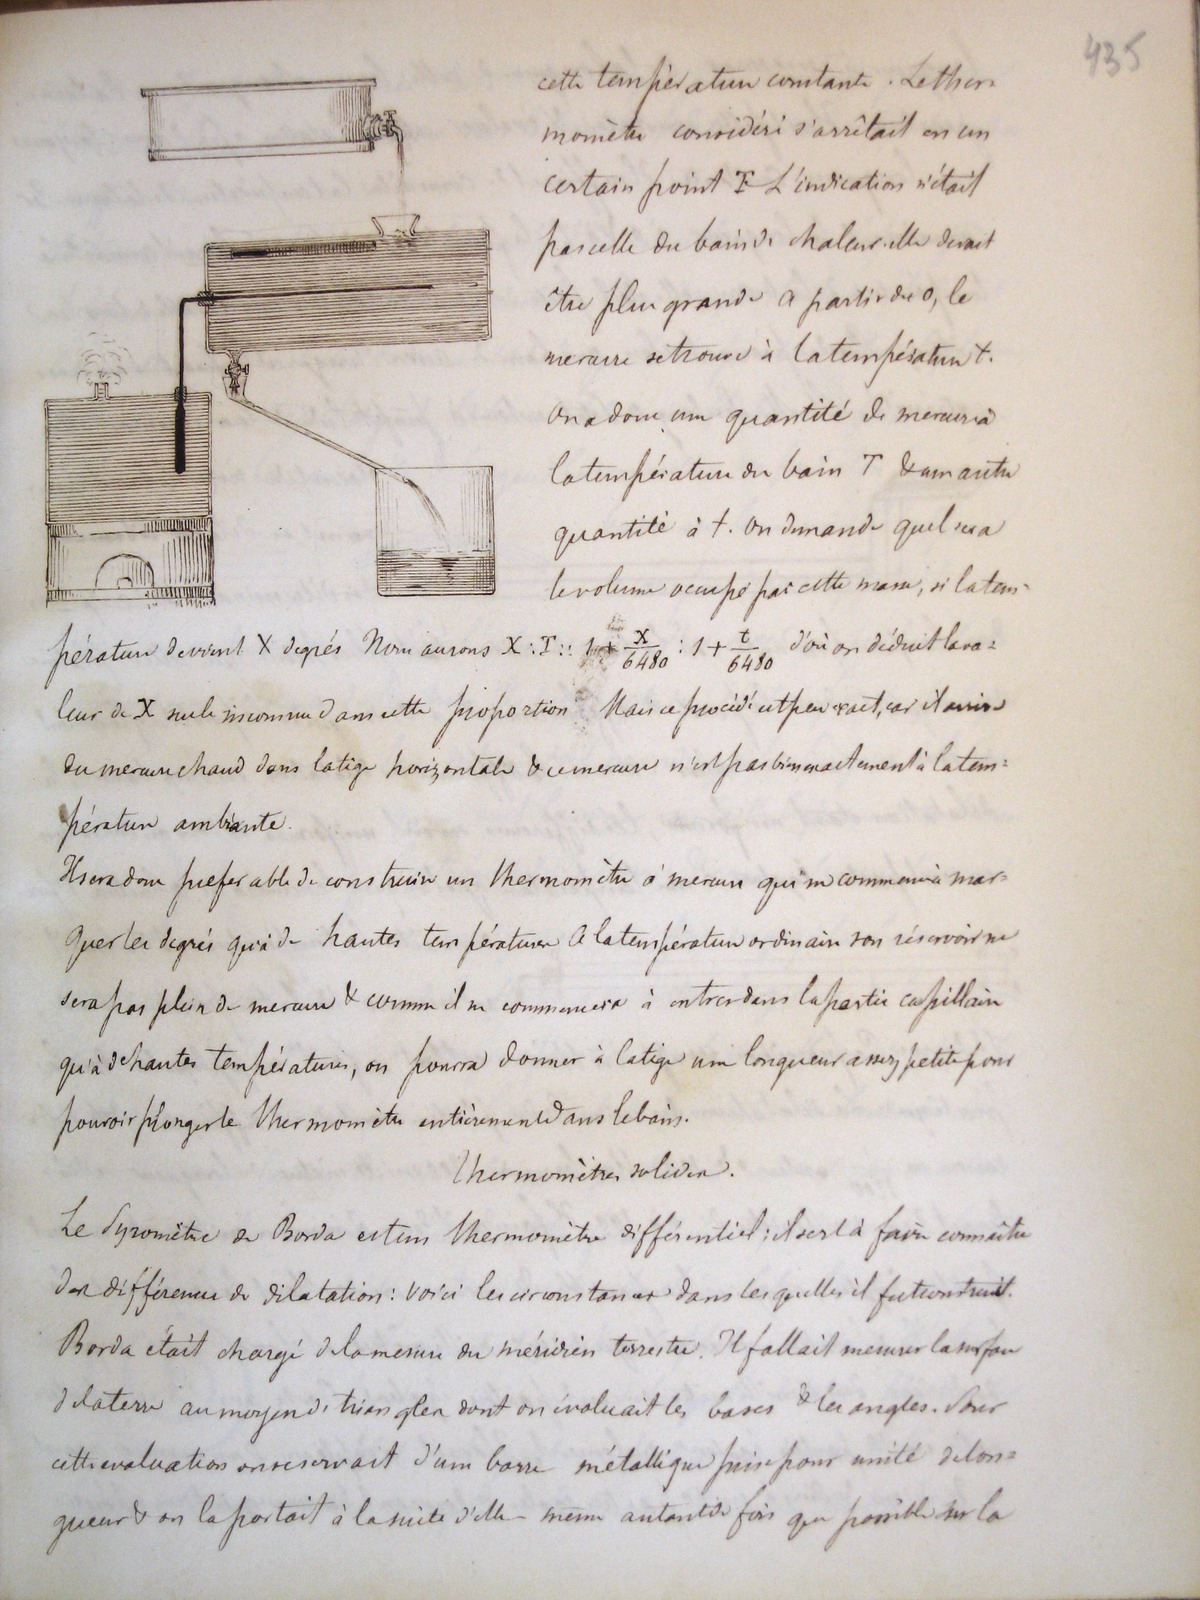 435
cette température constante. Le ther=
momètre considéré s'arrêtait en un
certain point T L'indication n'était
pas celle du bain de chaleur elle devait
être plus grande à partir du 0, le
mercure se trouve à la température t.
On a donc une quantité de mercure à
la température du bain T & une autre
quantité à t. On demande quel sera
le volume occupé par cette masse, si la tem=
pérature devient X degrés Nous aurons X : T :: 1 + X/6480 : 1 + t/6480 d'où on déduit la va=
leur de X seule inconnue dans cette proportion Mais ce procédé est peu exact, car il arrive
du mercure chaud dans la tige horizontale & ce mercure n'est pas bien exactement à la tem=
pérature ambiante.
Il sera donc preferable de construire un thermomètre à mercure qui ne commence à mar=
quer les degrés qu'à de hautes températures A la température ordinaire son réservoir ne
sera pas plein de mercure & comme il ne commencera à entrer dans la partie capillaire
qu'à de hautes températures, on pourra donner à la tige une longueur assez petite pour
pouvoir plonger le thermomètre entièrement dans le bain.
Thermomètres solides.
Le Pyromètre de Borda est un thermomètre différentiel : il sert à faire connaître
des différences de dilatation : voici les circonstances dans lesquelles il fut construit.
Borda était chargé de la mesure du méridien terrestre. Il fallait mesurer la surface
de la terre au moyen de triangles dont on évaluait les bases & les angles. Pour
cette evaluation on se servait d'une barre métallique prise pour unité de lon=
gueur & on la portait à la suite d'elle-même autant de fois que possible sur la